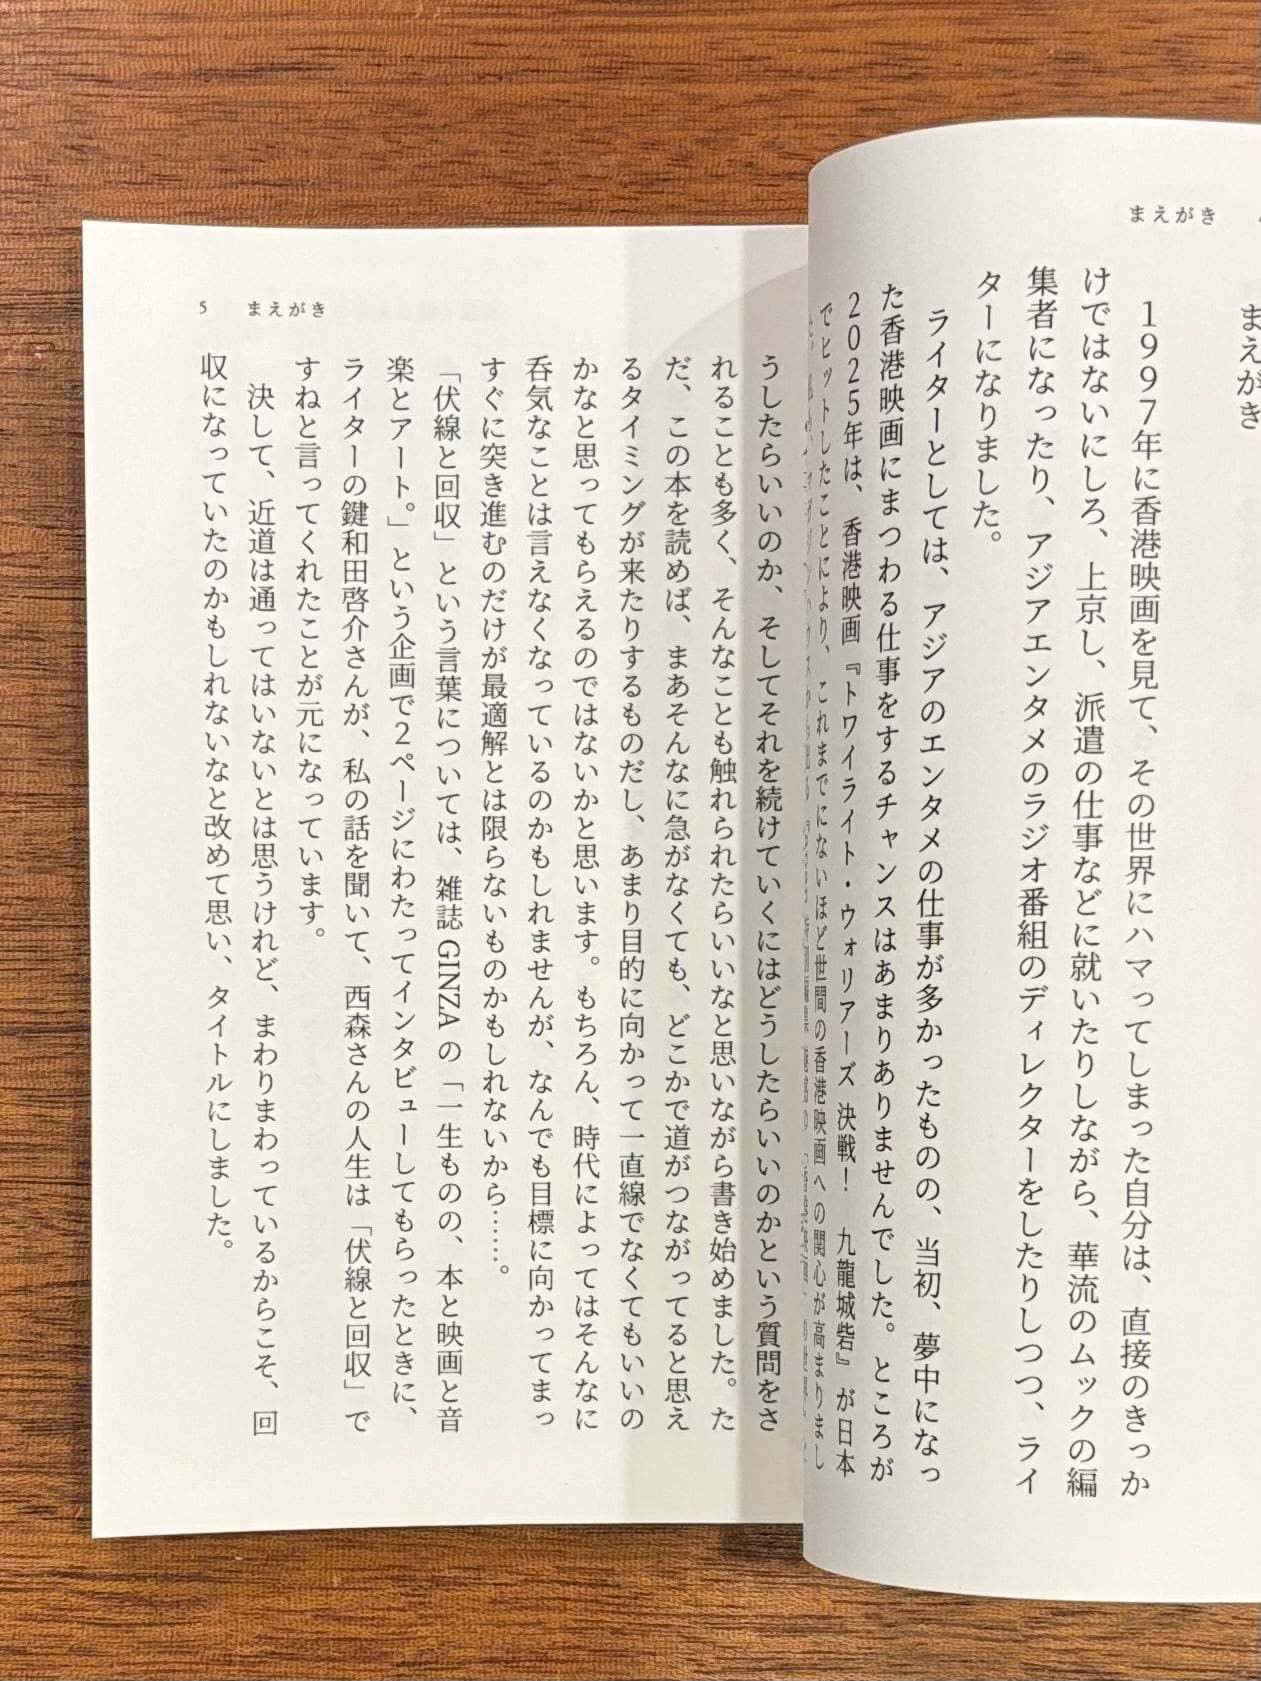 まえがき
まえがき
1997年に香港映画を見て、その世界にハマってしまった自分は、直接のきっか
けではないにしろ、上京し、派遣の仕事などに就いたりしながら、華流のムックの編
集者になったり、アジアエンタメのラジオ番組のディレクターをしたりしつつ、ライ
ターになりました。
ライターとしては、アジアのエンタメの仕事が多かったものの、当初、夢中になっ
た香港映画にまつわる仕事をするチャンスはあまりありませんでした。ところが
2025年は、香港映画『トワイライト・ウォリアーズ 決戦! 九龍城砦』が日本
でヒットしたことにより、これまでにないほど世間の香港映画への関心が高まりまし
5 まえがき
うしたらいいのか、そしてそれを続けていくにはどうしたらいいのかという質問をさ
れることも多く、そんなことも触れられたらいいなと思いながら書き始めました。た
だ、この本を読めば、まあそんなに急がなくても、どこかで道がつながってると思え
るタイミングが来たりするものだし、あまり目的に向かって一直線でなくてもいいの
かなと思ってもらえるのではないかと思います。もちろん、時代によってはそんなに
呑気なことは言えなくなっているのかもしれませんが、なんでも目標に向かってまっ
すぐに突き進むのだけが最適解とは限らないものかもしれないから……。
「伏線と回収」という言葉については、雑誌 GINZA の「一生ものの、本と映画と音
楽とアート。」という企画で2ページにわたってインタビューしてもらったときに、
ライターの鍵和田啓介さんが、私の話を聞いて、西森さんの人生は「伏線と回収」で
すねと言ってくれたことが元になっています。
決して、近道は通ってはいないとは思うけれど、まわりまわっているからこそ、回
収になっていたのかもしれないなと改めて思い、タイトルにしました。